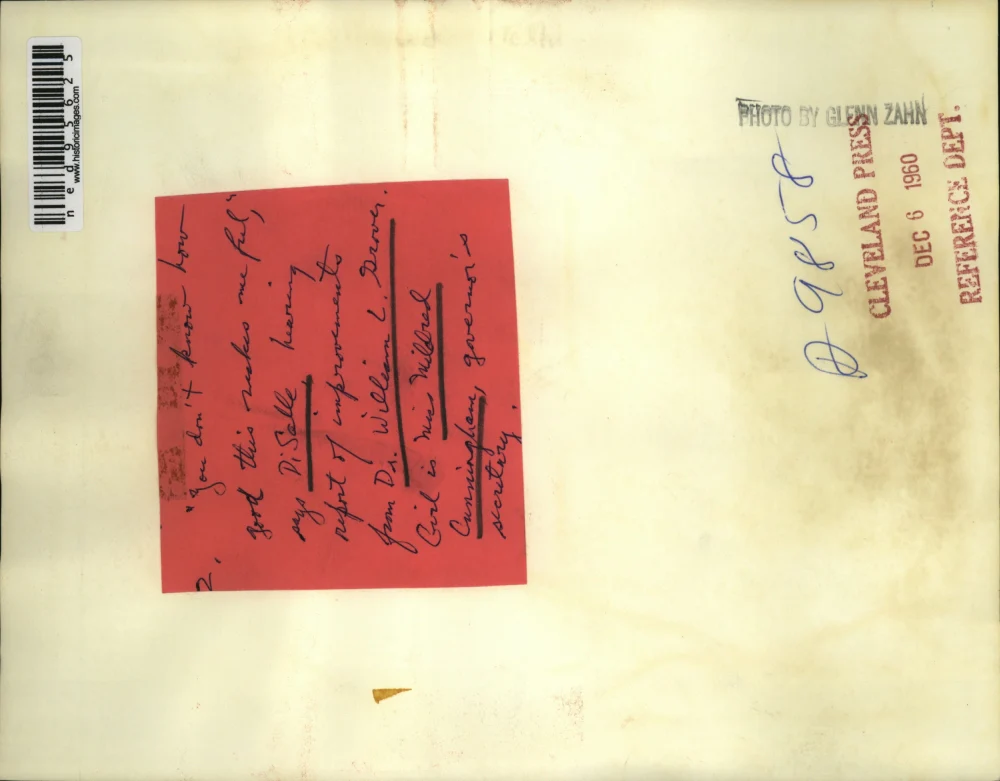 2. "You don't know how
good this makes me feel,"
says DiSalle hearing
report of improvements
from Dr. William L. Grover.
Girl is Miss Mildred
Cunningham, governor's
secretary.
PHOTO BY GLENN ZAHN
D 9858
CLEVELAND PRESS
DEC 6 1960
REFERENCE DEPT.
www.historicimages.com
ned95625